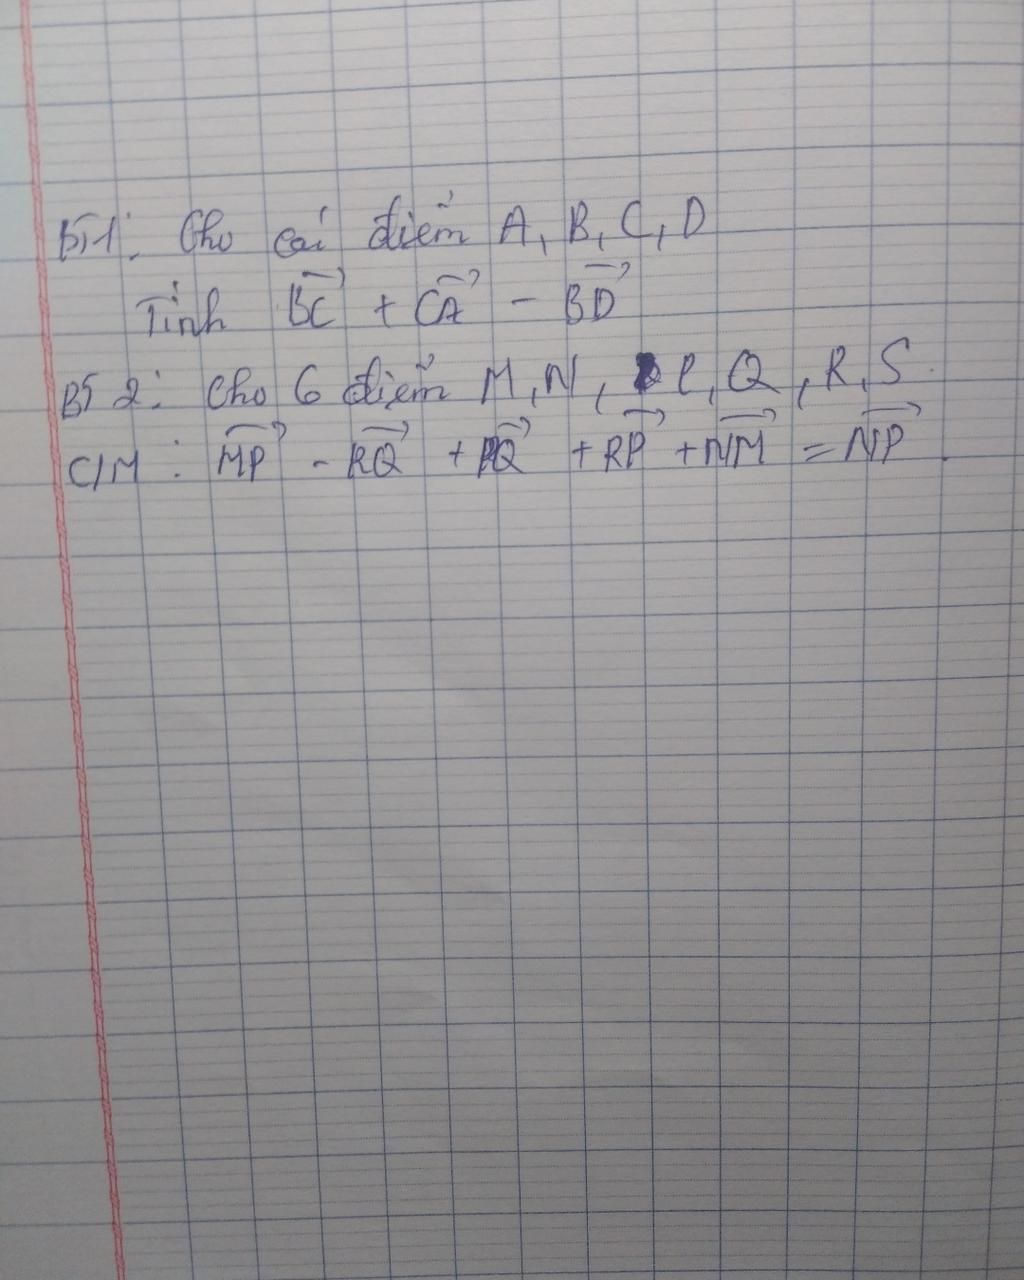 BT1: Cho các điểm A, B, C, D
Tính BC⃗ + CA⃗ - BD⃗
BT 2: Cho 6 điểm M, N, P, Q, R, S.
C/M: MP⃗ - RQ⃗ + PQ⃗ + RP⃗ + NM⃗ = NP⃗.